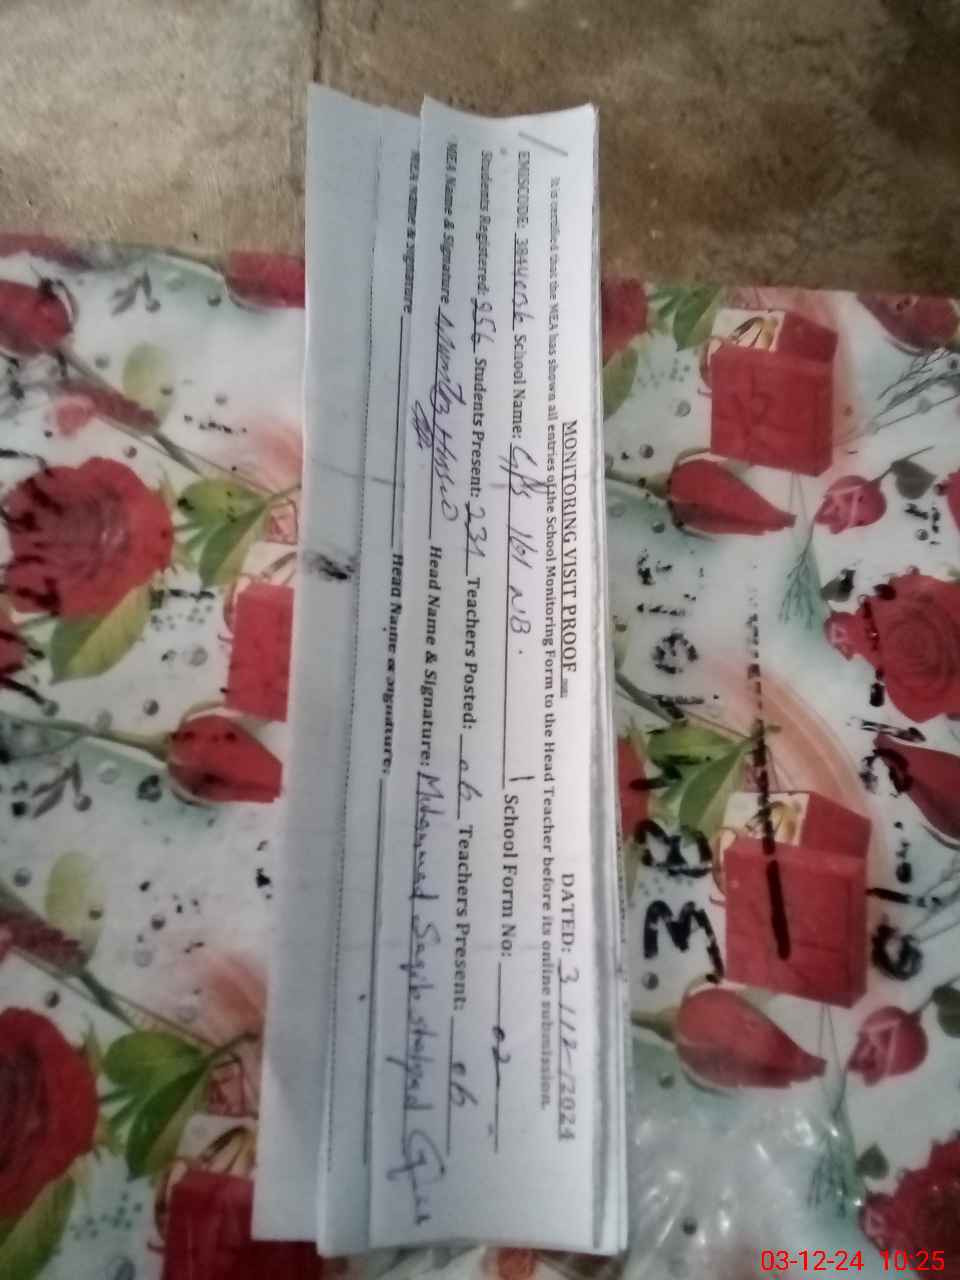 MONITORING VISIT PROOF DATED: 3/12/2024
It is certified that the MEA has shown all entries of the School Monitoring Form to the Head Teacher before its online submission.
EMISCODE: School Name: GPS 161 NB. School Form No: 02
Students Registered: 256 Students Present: 231 Teachers Posted: 06 Teachers Present: 06
MEA Name & Signature Head Name & Signature: Muhammad Saqib
MEA name & signature Head Name & signature:
03-12-24 10:25